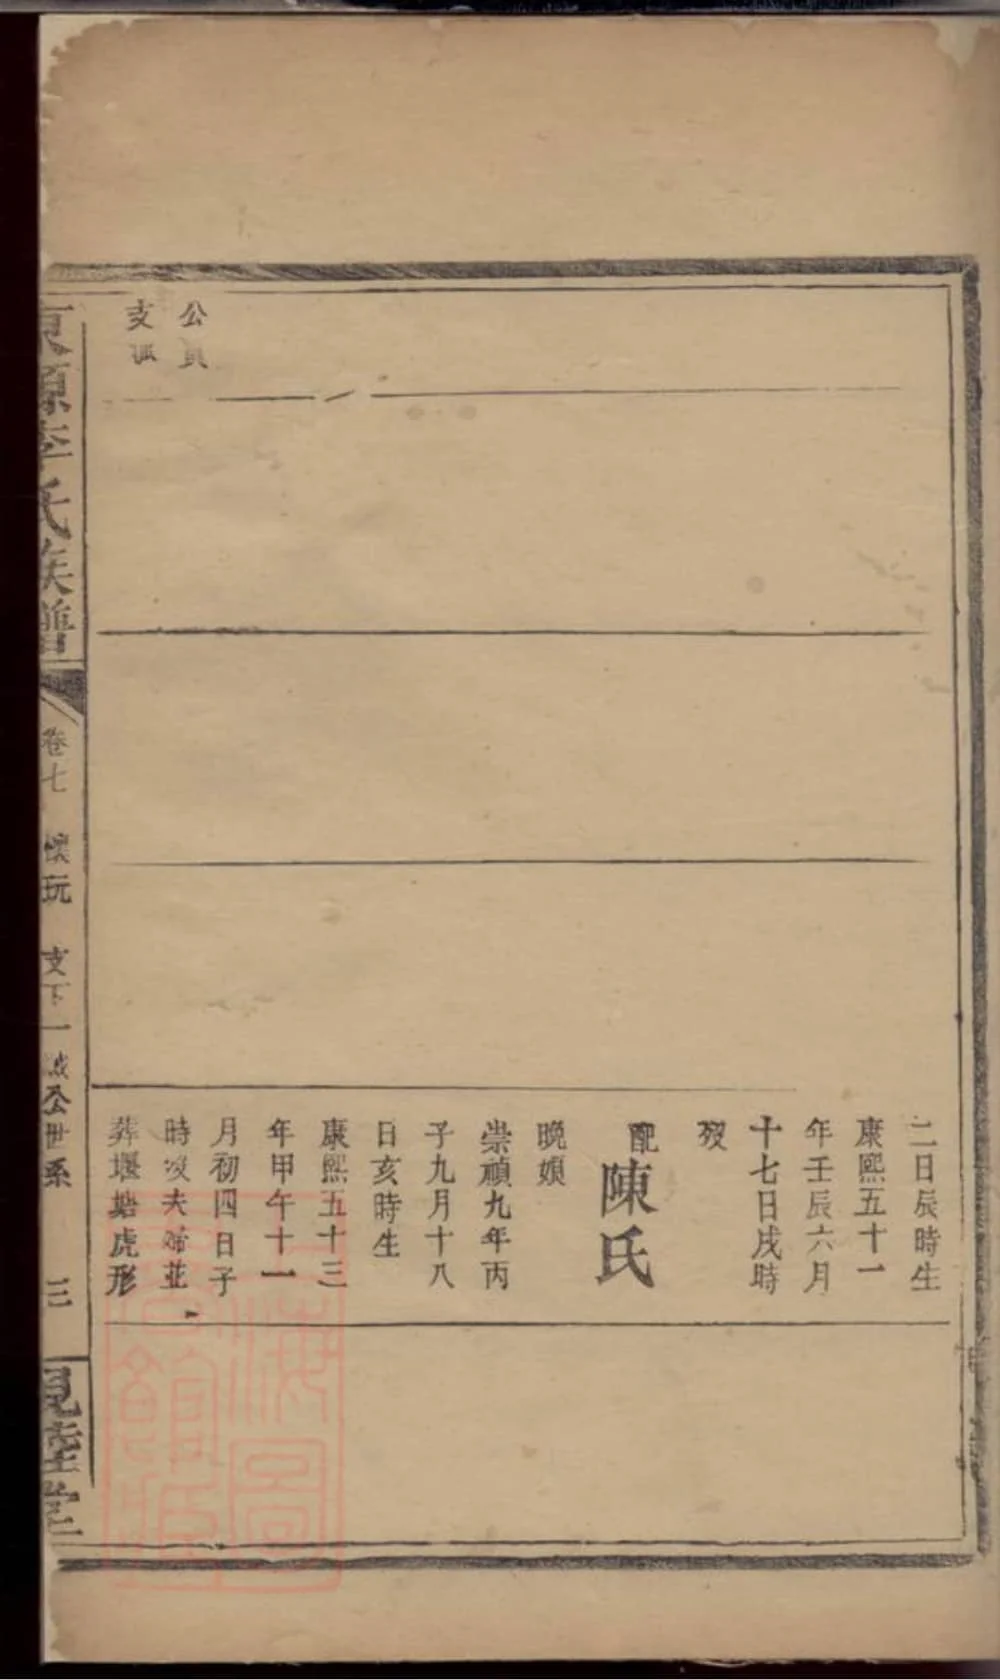 二日辰時生
康熙五十一
年壬辰六月
十七日戌時
歿
配陳氏
晚娘
崇禎九年丙
子九月十八
日亥時生
康熙五十三
年甲午十一
月初四日子
時歿夫婦並
葬堰塘虎形
公
支派
源李氏族譜
卷七 懷玩 支下一誠公世系 三
堂